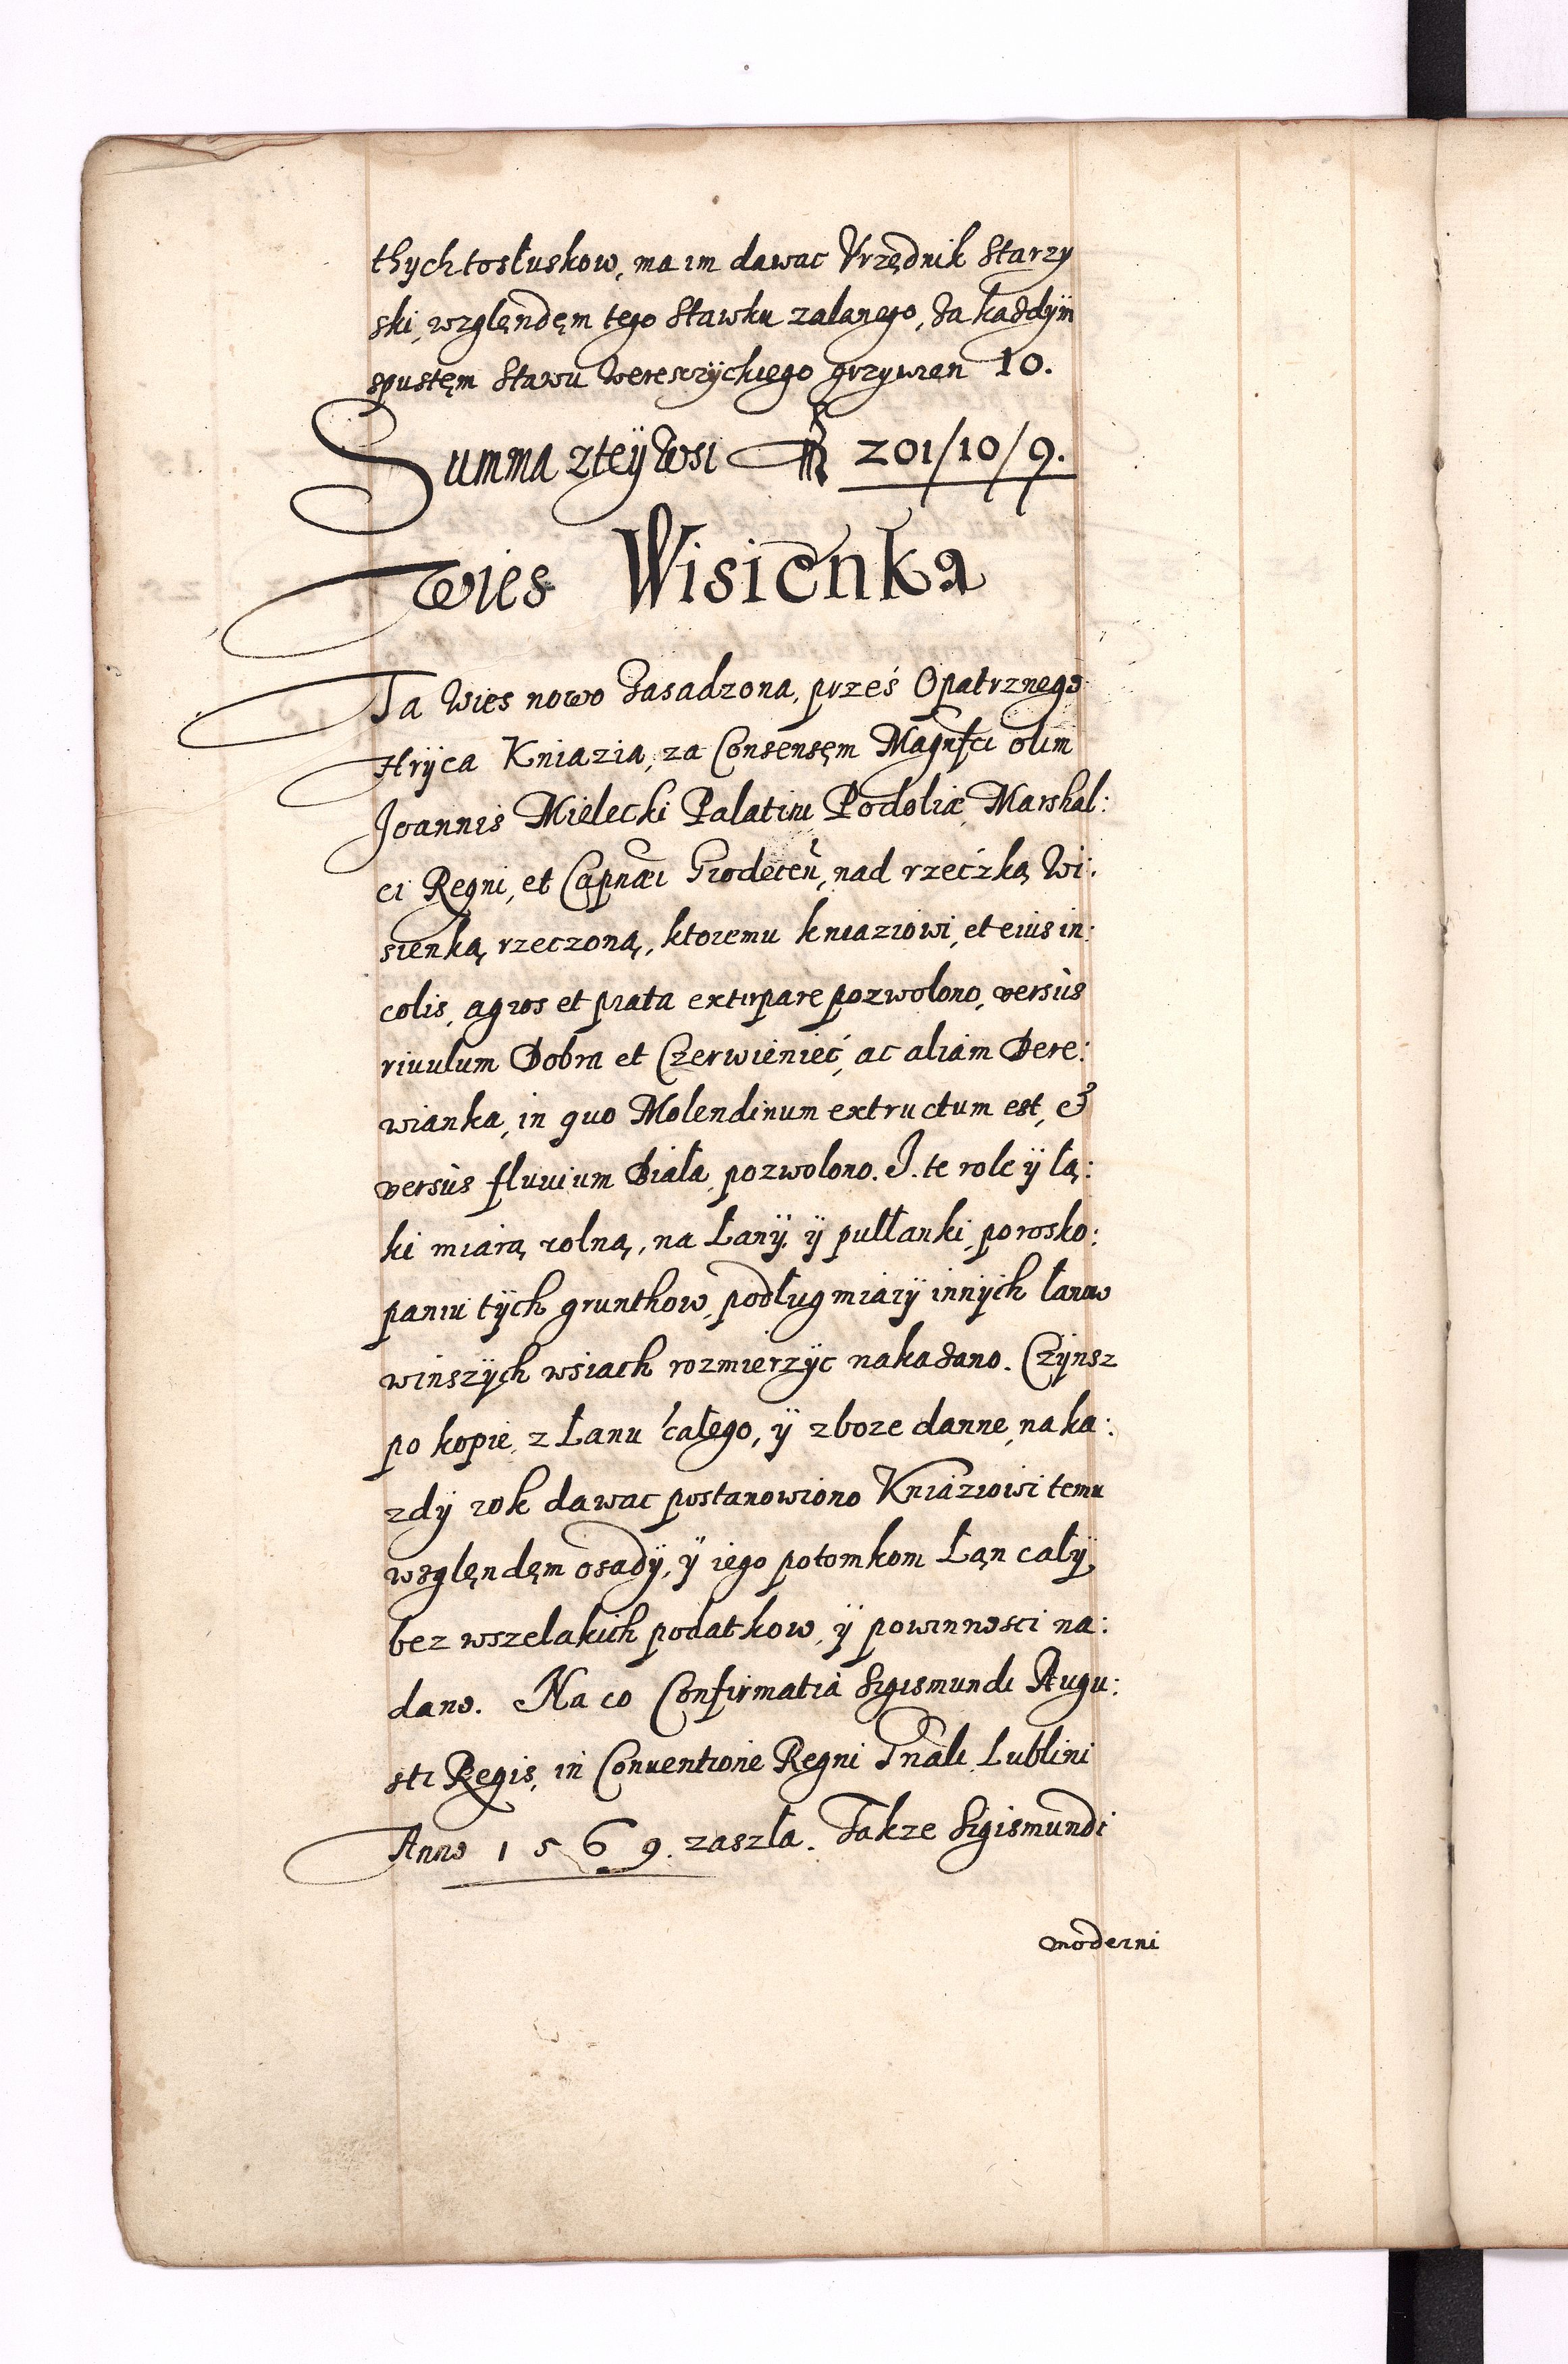 thych tosłuskow, ma im dawac Vrzędnik Starzy
ski, wzglęndęm tego Stawku zalanego, Za kaZdÿm
spustęm Stawu Wereszÿckiego grzywien 10.
Summa zteÿ Wsi 201/10/9.
Wies Wisienka
Ta Wies nowo Zasadzona, przes Opatrznego
Hrÿca Kniazia, za Consensęm Magnfci olim
Joannis Mielecki Palatini Podoliæ Marshal:
ci Regni, et Capnæi Grodeceń, nad rzeczką Wi:
sienką rzeczoną, ktoremu kniaziowi, et eius in:
colis, agros et prata extirpare pozwolono, versùs
riuulum Dobra et Czerwieniec, ac aliam Dere:
wianka, in quo Molendinum extructum est, &
versùs fluuium Biała pozwolono. J. te role ÿ łą:
ki miarą rolną, na Łanÿ ÿ pułłanki porosko:
paniu tÿch grunthow, podług miarÿ innÿch łanow
winszÿch wsiach rozmierzÿc nakaZano. Czÿnsz
po kopie, z Łanu całego, ÿ zboze danne, na ka:
zdÿ rok dawac postanowiono Kniaziowi temu
wzglęndęm osadÿ, ÿ iego potomkom Łan całÿ
bez wszelakich podatkow, ÿ powinnosci na:
dano. Na co Confirmatia Sigismundi Augu:
sti Regis, in Conuentione Regni Gnali Lublini
Anno 1569. zaszła. Takze Sigismundi
moderni